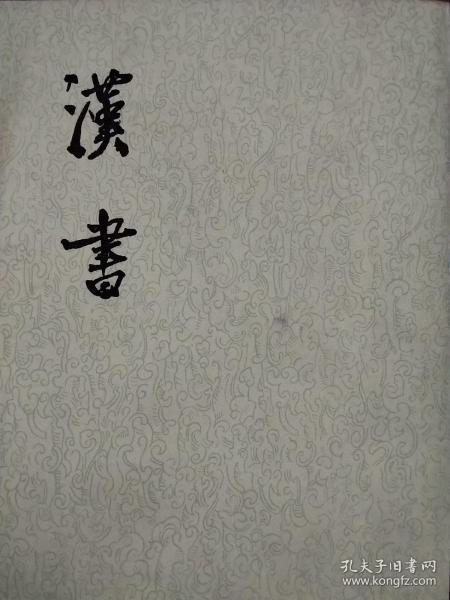 漢書
孔夫子旧书网
www.kongfz.com